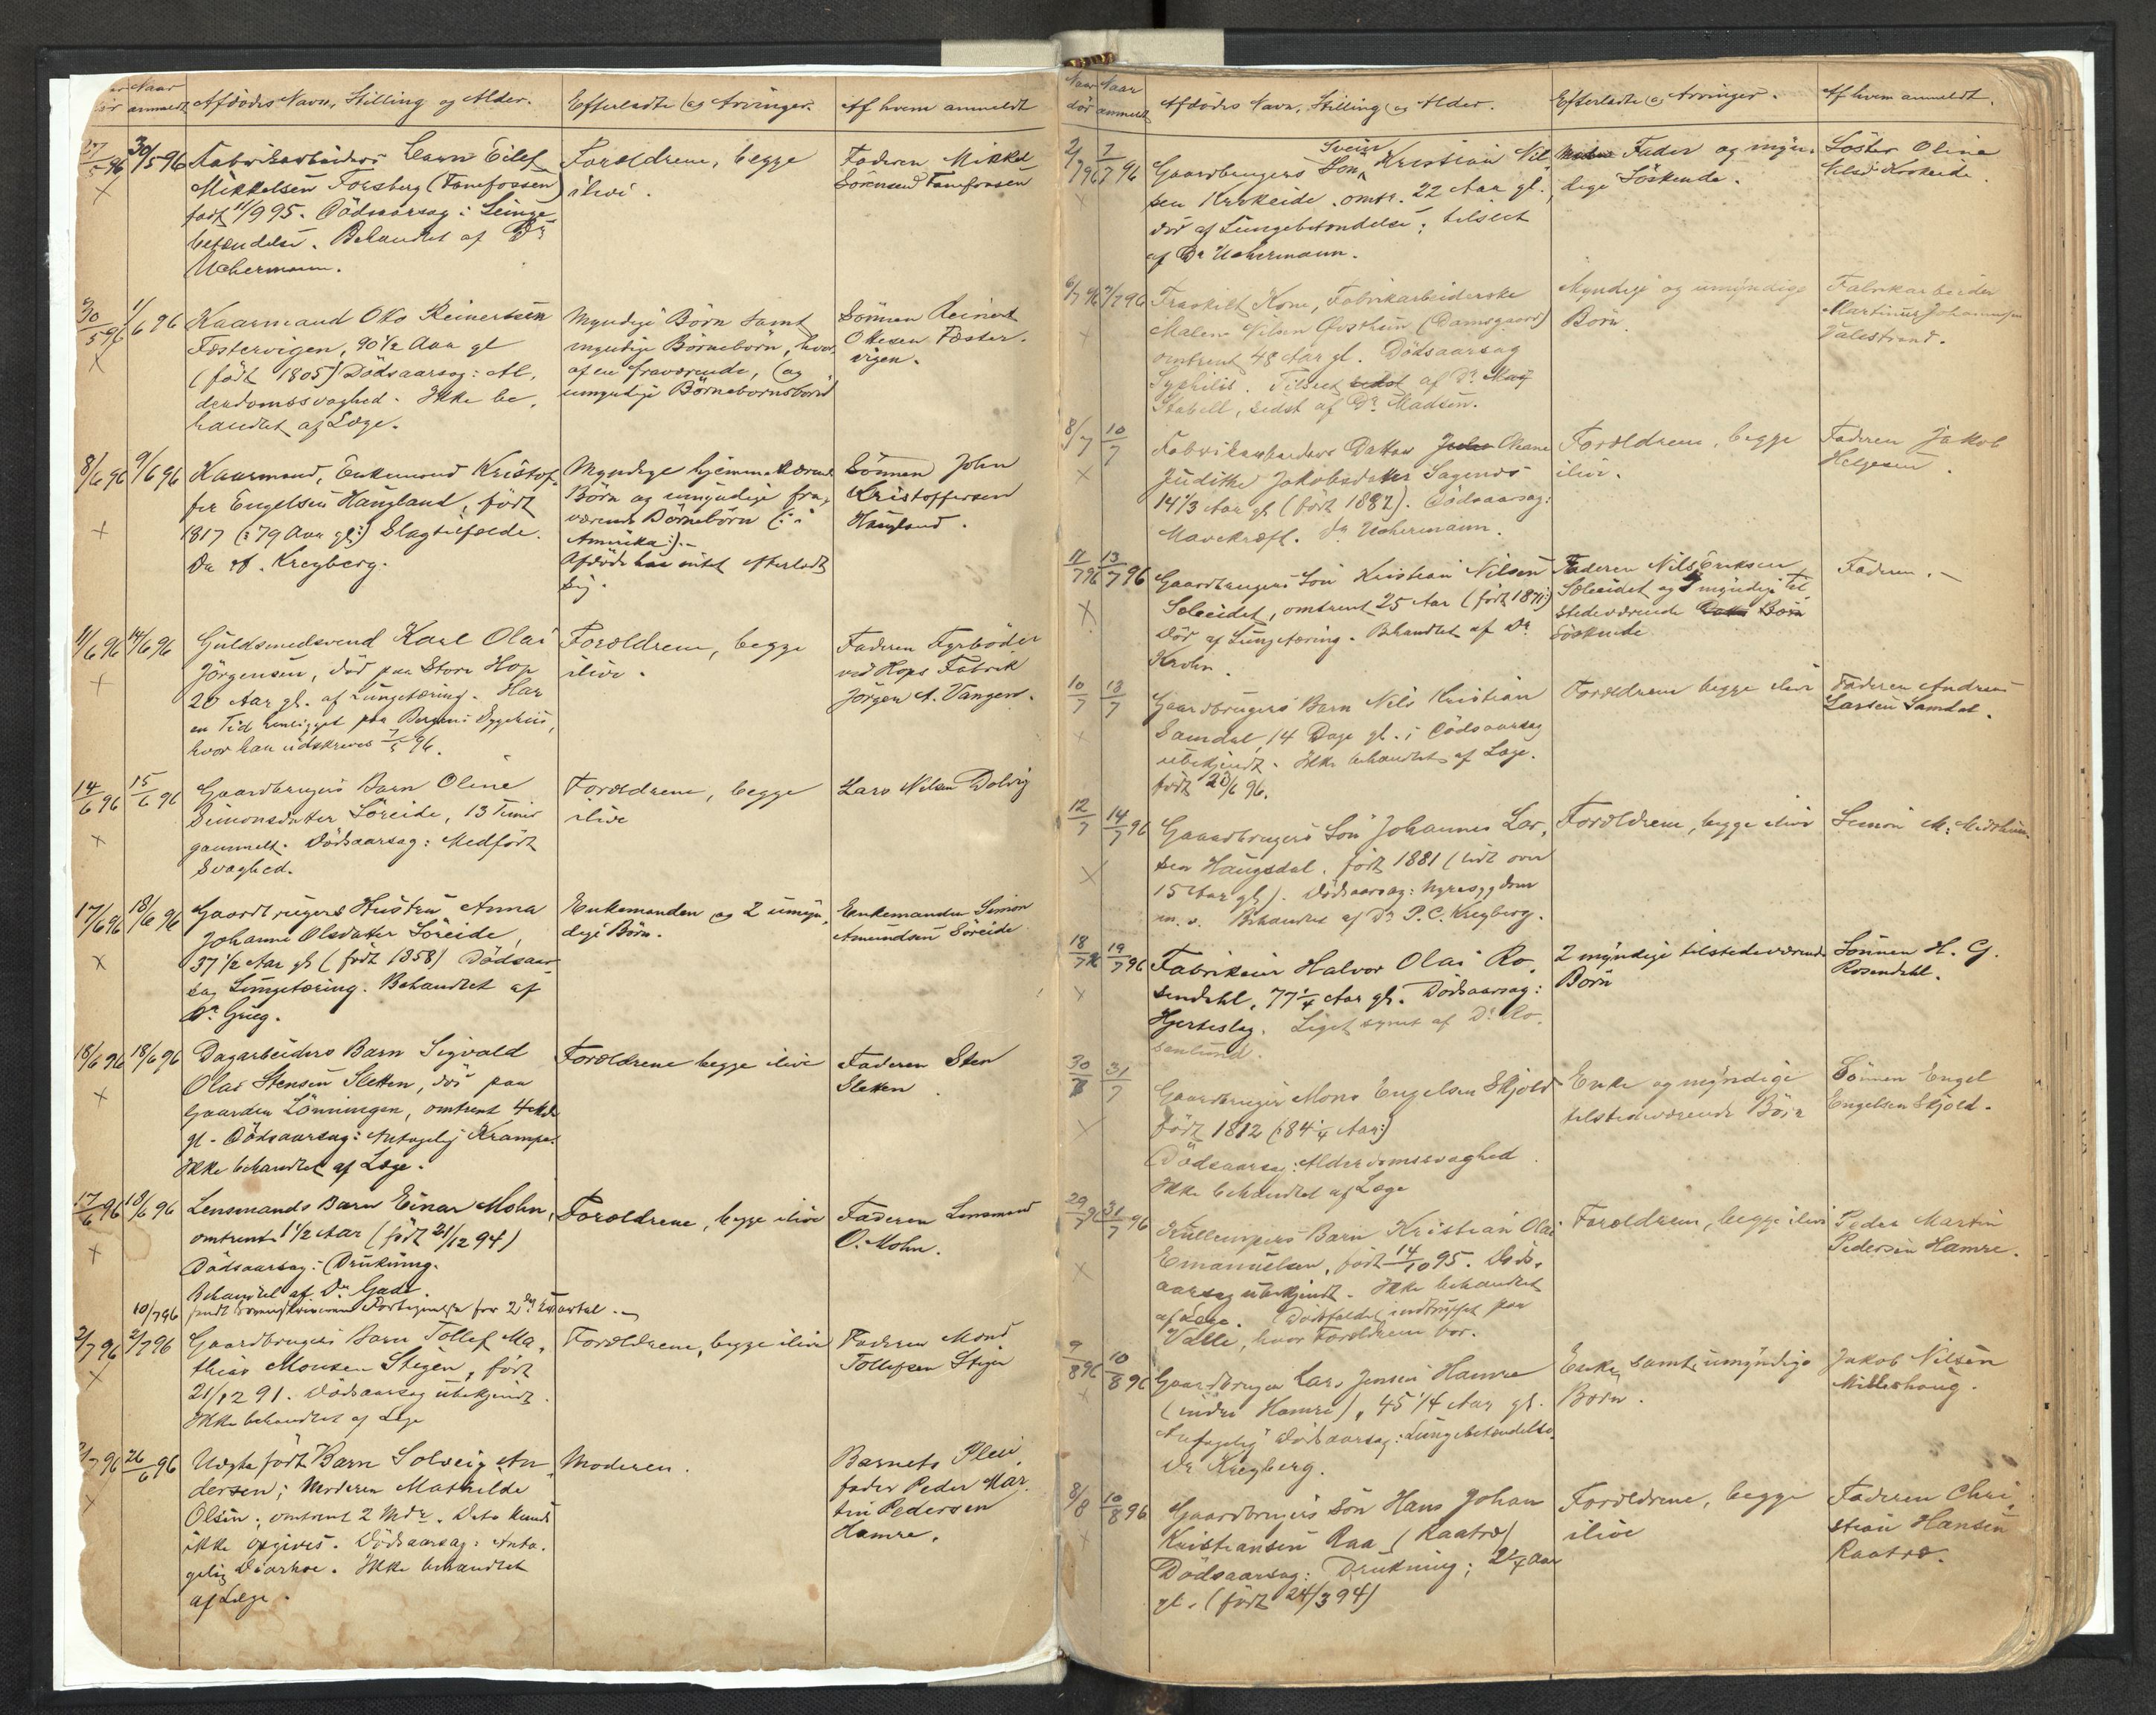 Naar anmeldt Afdödes Navn, Stilling og Alder. Efterladte og Arvinger. Af hvem anmeldt
27/5 96 30/5 96 Fabrikarbeiders Barn Eilef
Mikkelsen Forsberg (Fanefossen)
født 11/9 95. Dödsaarsag: Lunge
betændelse. Behandlet af Dr
Uchermann.
Forældrene, begge
ilive.
Faderen Mikkel
Sörensen Fanefossen
30/5 96 1/6 96 Kaarmand Ole Reinertsen
Fæstervigen, 90 1/2 Aar gl
(født 1805) Dödsaarsag: Al,
derdomssvaghed. Ikke be,
handlet af Læge.
Myndige Börn samt
myndige Börnebörn, hvor,
af en fraværende, og
umyndige Börnebörnsbörn
Sönnen Reinert
Olesen Fæster,
vigen.
8/6 96 9/6 96 Kaarmand, Enkemand Kristof,
fer Engelsen Haugland, født
1817 (: 79 Aar gl:) Slagtilfælde.
Dr Kreyberg.
Myndige hjemmeværende
Börn og umyndige fra,
værende Börnebörn (: i
Amerika:).-
Afdöde har intet efterladt
sig.
Sönnen John
Kristoffersen
Haugland.
11/6 96 14/6 96 Guldsmedsvend Karl Olai
Jörgensen, död paa Store Hop
20 Aar gl. af Lungetæring. Har
en Tid henligget paa Bergens Sygehus,
hvor han udskreves 7/5 96.
Forældrene, begge
ilive.
Faderen Fyrböder
ved Hops Fabrik
Jörgen A. Vangen.
14/6 96 15/6 96 Gaardbrugers Barn Oline
Simonsdatter Söreide, 13 Timer
gammelt. Dödsaarsag: Medfödt
Svaghed.
Forældrene, begge
ilive
Lars Nilsen Dolvig
17/6 96 18/6 96 Gaardbrugers Hustru Anna
Johanne Olsdatter Söreide,
37 1/2 Aar gl (født 1858) Dödsaar
sag Lungetæring. Behandlet af
Dr Grieg.
Enkemanden og 2 umyn,
dige Börn.
Enkemanden Simon
Amundsen Söreide
18/6 96 18/6 96 Dagarbeiders Barn Sigvald
Olai Stensen Sletten, död paa
Gaarden Lönningen, omtrent 4 Mdr
gl. Dödsaarsag: Antagelig Krampe.
Ikke behandlet af Læge.
Forældrene begge ilive
Faderen Sten
Sletten.
17/6 96 18/6 96 Lensmands Barn Einar Mohn,
omtrent 1 1/2 Aar (født 31/12 94)
Dödsaarsag: Drukning.
Behandlet af Dr Gade.
Forældrene, begge ilive
Faderen Lensmand
O. Mohn.
10/7 96 sendt Fortegnelse for 2det Kvartal.-
2/7 96 2/7 96 Gaardbrugers Barn Tollef Ma,
thias Monsen Stegen, født
21/12 91. Dödsaarsag ubekjendt.
Ikke behandlet af Læge
Forældrene, begge ilive
Faderen Mons
Tollefsen Stegen
96 26/6 96 Uægte født Barn Solveig An,
dersen; Moderen Mathilde
Olsen; omtrent 2 Mdr. Dato kunde
ikke opgives. Dödsaarsag: Anta,
gelig Diarhoe. Ikke behandlet
af Læge.
Moderen.
Barnets Pleie,
fader Peder Mar,
tin Pedersen
Hamre.
Naar dör Naar anmeldt Afdödes Navn, Stilling og Alder. Efterladte og Arvinger. Af hvem anmeldt.
2/7 96 7/7 96 Gaardbrugers Sön Svein Kristian Nil,
sen Krokeide, omtr. 22 Aar gl.,
död af Lungebetændelse; tilseet
af Dr Uchermann.
Fader og myn,
dige Söskende.
Söster Oline
Nilsd Krokeide.
6/7 96 7/7 96 Fraskilt Kone, Fabrikarbeiderske
Malene Nilsen Østhun (Damsgaard)
omtrent 48 Aar gl. Dödsaarsag
Syphilis. Tilseet sidst af Dr May
Stabell, sidst af Dr Madsen.
Myndige og umyndige
Börn.
Fabrikarbeider
Martinus Johannesen
Valestrand.
8/7 10/7 Fabrikarbeiders Datter Ohane
Judithe Jakobsdatter Sagenes
14 1/3 Aar gl (født 1882). Dödsaarsag:
Mavekræft. Dr Uchermann.
Forældrene, begge
ilive.
Faderen Jakob
Helgesen.
11/7 96 13/7 96 Gaardbrugers Sön Kristian Nilsen
Soleidet, omtrent 25 Aar (født 1871)
Död af Lungetæring. Behandlet af Dr
Krohn.
Faderen Nils Eriksen
Soleidet og myndige til,
stedeværende Börn
Söskende
Faderen.-
10/7 13/7 Gaardbrugers Barn Nils Kristian
Samdal, 14 Dage gl.; Dödsaarsag
ubekjendt. Ikke behandlet af Læge.
født 23/6 96.
Forældrene begge ilive
Faderen Andreas
Larsen Samdal.
12/7 14/7 96 Gaardbrugers Sön Johannes Lar,
sen Haugsdal, født 1881 (lidt over
15 Aar gl). Dödsaarsag: Nyresygdom
m. v. Behandlet af Dr P. C. Kreyberg.
Forældrene, begge ilive
Simon M. Midthun
18/7 96 19/7 96 Fabrikeier Halvor Olai Ro,
sendahl, 77 1/4 Aar gl. Dödsaarsag:
Hjerteslag. Liget synet af Dr Ro,
senlund.
2 myndige tilstedeværende
Börn
Sönnen H. G.
Rosendahl.
30/7 31/7 Gaardbruger Mons Engelsen Skjold
født 1812 (: 84 1/4 Aar:)
Dödsaarsag: Alderdomssvaghed.
Ikke behandlet af Læge
Enke og myndige
tilstedeværende Börn
Sönnen Engel
Engelsen Skjold.
29/7 96 31/7 96 Kullempers Barn Kristian Olai
Emanuelsen, født 14/10 95. Döds,
aarsag ubekjendt. Ikke behandlet
af Læge. Dödsfaldet indtruffet paa
Valle, hvor Forældrene bor.
Forældrene, begge ilive
Peder Martin
Pedersen Hamre.
9/8 96 10/8 96 Gaardbruger Lars Jensen Hamre
(indre Hamre), 45 1/4 Aar gl.
Antagelig Dödsaarsag: Lungebetændelse.
Dr Kreyberg.
Enke, samt umyndige
Börn.
Jakob Nilsen
Milleshaug.
8/8 10/8 96 Gaardbrugers Sön Hans Johan
Kristiansen Raa (Raatræ)
Dödsaarsag: Drukning; 2 1/4 Aar
gl. (født 24/3 94)
Forældrene, begge
ilive
Faderen Chri,
stian Hansen
Raatræ.